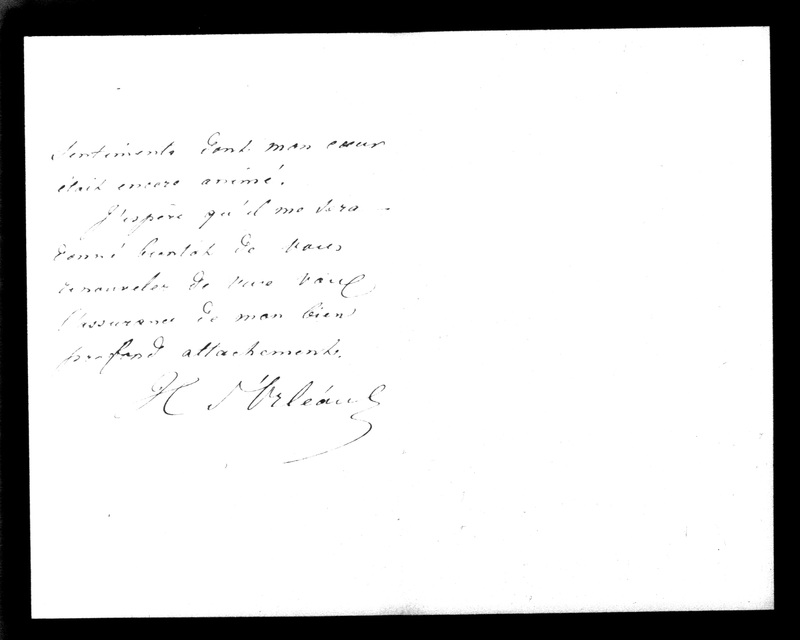 sentiments dont mon cœur
était encore animé.
J'espère qu'il me sera
donné bientôt de vous
renouveler de vive voix
l'assurance de mon bien
profond attachement.
H d'Orléans